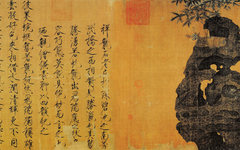 祥龍石者立於環碧池之南芳
洲橋之西相對則勝瀛也其勢
騰湧若虯龍出為瑞應之狀奇
容巧態莫能具絕妙而言之也
廼親繪縑素聊以四韻紀之
彼美蜿蜒勢若龍挺然為瑞獨稱雄
雲凝好色來相借水潤清輝更不同